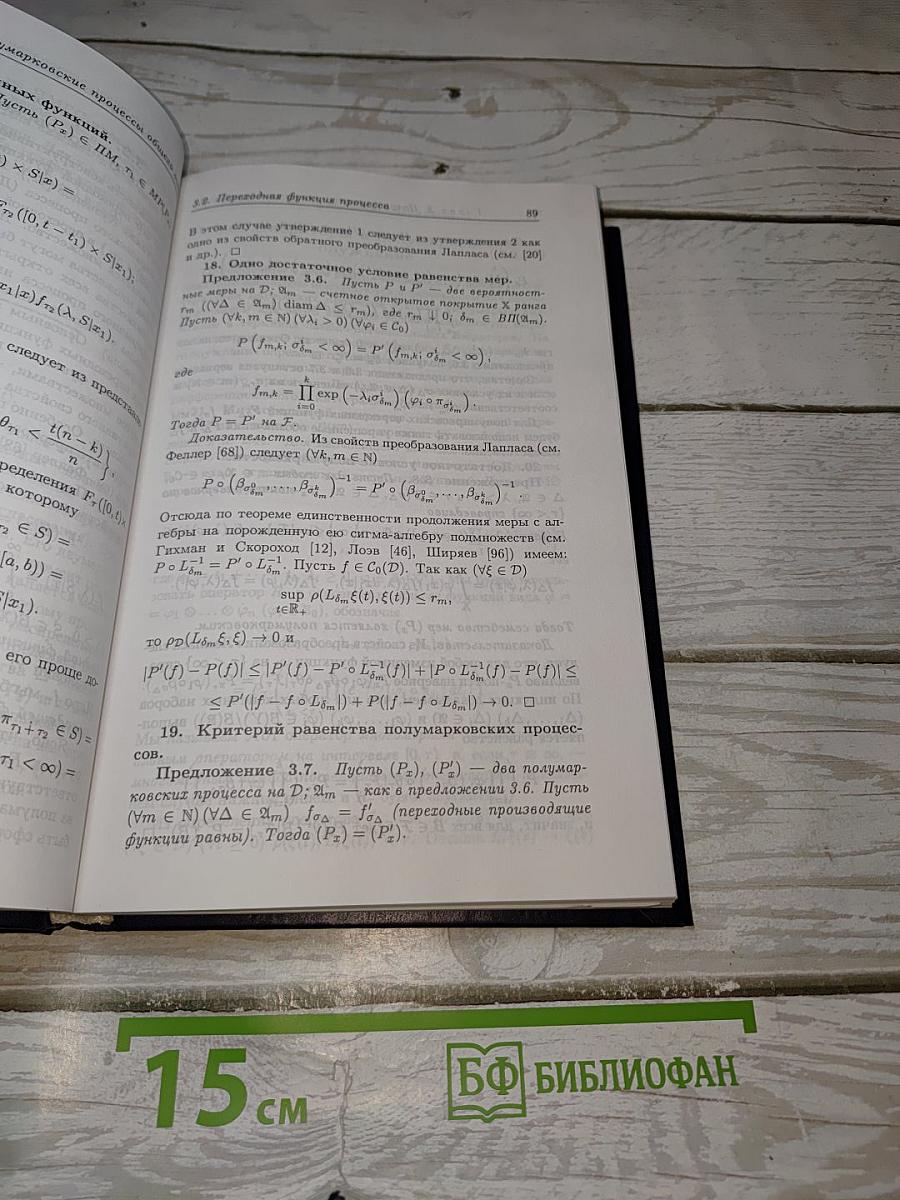 умарковские процессы общего
ных функций.
Пусть (Pₓ) ∈ ПМ, τ₁ ∈ МР(Pₓ
) × S|x) =
F_{τ₂}([0, t − t₁) × S|x₁),
x₁|x) f_{τ₂}(λ, S|x₁).
следует из представле
θ_{τ₁} < t(n − k)/n },
ределения F_τ([0, t) ×
которому
τ₂ ∈ S) =
[a, b)) =
S|x₁).
его проще до-
π_{τ₁+τ₂} ∈ S) =
τ₁ < ∞) =
3.2. Переходная функция процесса 89
В этом случае утверждение 1 следует из утверждения 2 как
одно из свойств обратного преобразования Лапласа (см. [20]
и др.). □
18. Одно достаточное условие равенства мер.
Предложение 3.6. Пусть P и P′ — две вероятност-
ные меры на 𝒟; 𝔄ₘ — счетное открытое покрытие 𝕏 ранга
rₘ ((∀Δ ∈ 𝔄ₘ) diam Δ ≤ rₘ), где rₘ ↓ 0; δₘ ∈ ВП(𝔄ₘ).
Пусть (∀k, m ∈ ℕ) (∀λᵢ > 0) (∀φᵢ ∈ C₀)
P (f_{m,k}; σ^i_{δₘ} < ∞) = P′ (f_{m,k}; σ^i_{δₘ} < ∞),
где
f_{m,k} = ∏_{i=0}^{k} exp (−λᵢσ^i_{δₘ}) (φᵢ ∘ π_{σ^i_{δₘ}}).
Тогда P = P′ на ℱ.
Доказательство. Из свойств преобразования Лапласа (см.
Феллер [68]) следует (∀k, m ∈ ℕ)
P ∘ (β_{σ⁰_{δₘ}}, ..., β_{σᵏ_{δₘ}})⁻¹ = P′ ∘ (β_{σ⁰_{δₘ}}, ..., β_{σᵏ_{δₘ}})⁻¹
Отсюда по теореме единственности продолжения меры с ал-
гебры на порожденную ею сигма-алгебру подмножеств (см.
Гихман и Скороход [12], Лоэв [46], Ширяев [96]) имеем:
P ∘ L⁻¹_{δₘ} = P′ ∘ L⁻¹_{δₘ}. Пусть f ∈ C₀(𝒟). Так как (∀ξ ∈ 𝒟)
sup_{t∈ℝ₊} ρ(L_{δₘ}ξ(t), ξ(t)) ≤ rₘ,
то ρ_𝒟(L_{δₘ}ξ, ξ) → 0 и
|P′(f) − P(f)| ≤ |P′(f) − P′ ∘ L⁻¹_{δₘ}(f)| + |P ∘ L⁻¹_{δₘ}(f) − P(f)| ≤
≤ P′(|f − f ∘ L_{δₘ}|) + P(|f − f ∘ L_{δₘ}|) → 0. □
19. Критерий равенства полумарковских процес-
сов.
Предложение 3.7. Пусть (Pₓ), (P′ₓ) — два полумар-
ковских процесса на 𝒟; 𝔄ₘ — как в предложении 3.6. Пусть
(∀m ∈ ℕ) (∀Δ ∈ 𝔄ₘ) f_{σ_Δ} = f′_{σ_Δ} (переходные производящие
функции равны). Тогда (Pₓ) = (P′ₓ).
15 см
БФ БИБЛИОФАН